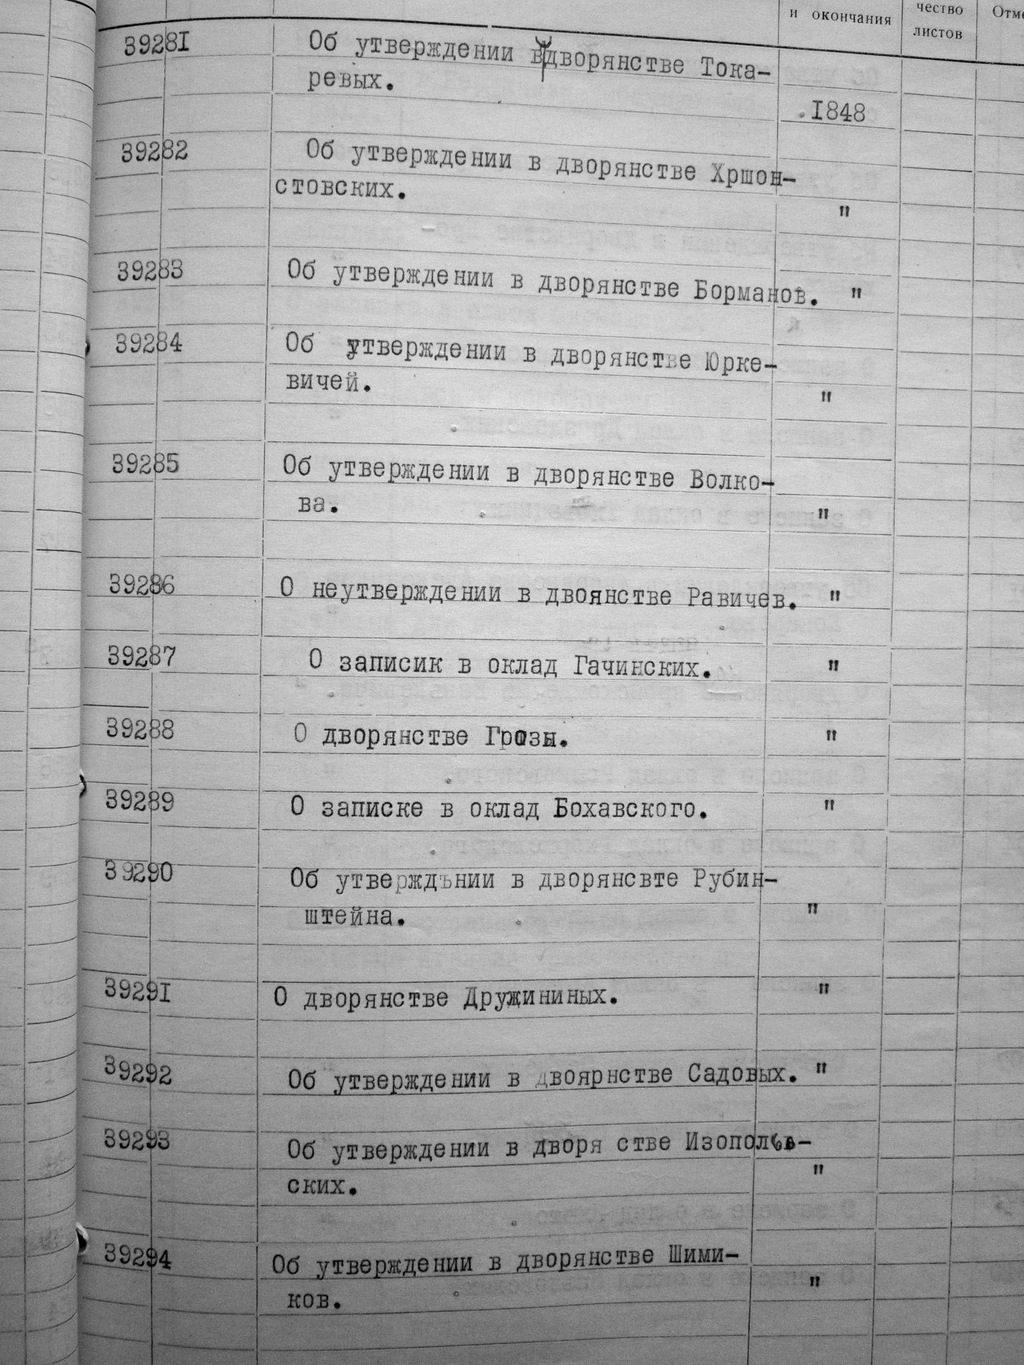 и окончания
чество
листов
Отме
39281 Об утверждении в дворянстве Тока-
ревых.
1848
39282 Об утверждении в дворянстве Хршон-
стовских.
"
39283 Об утверждении в дворянстве Борманов. "
39284 Об утверждении в дворянстве Юрке-
вичей. "
39285 Об утверждении в дворянстве Волко-
ва. "
39286 О неутверждении в двоянстве Равичев. "
39287 О записик в оклад Гачинских. "
39288 О дворянстве Грозн. "
39289 О записке в оклад Бохавского. "
39290 Об утверждънии в дворянсвте Рубин-
штейна. "
39291 О дворянстве Дружининых. "
39292 Об утверждении в двоярнстве Садовых. "
39293 Об утверждении в дворя стве Изополь-
ских. "
39294 Об утверждении в дворянстве Шими-
ков. "